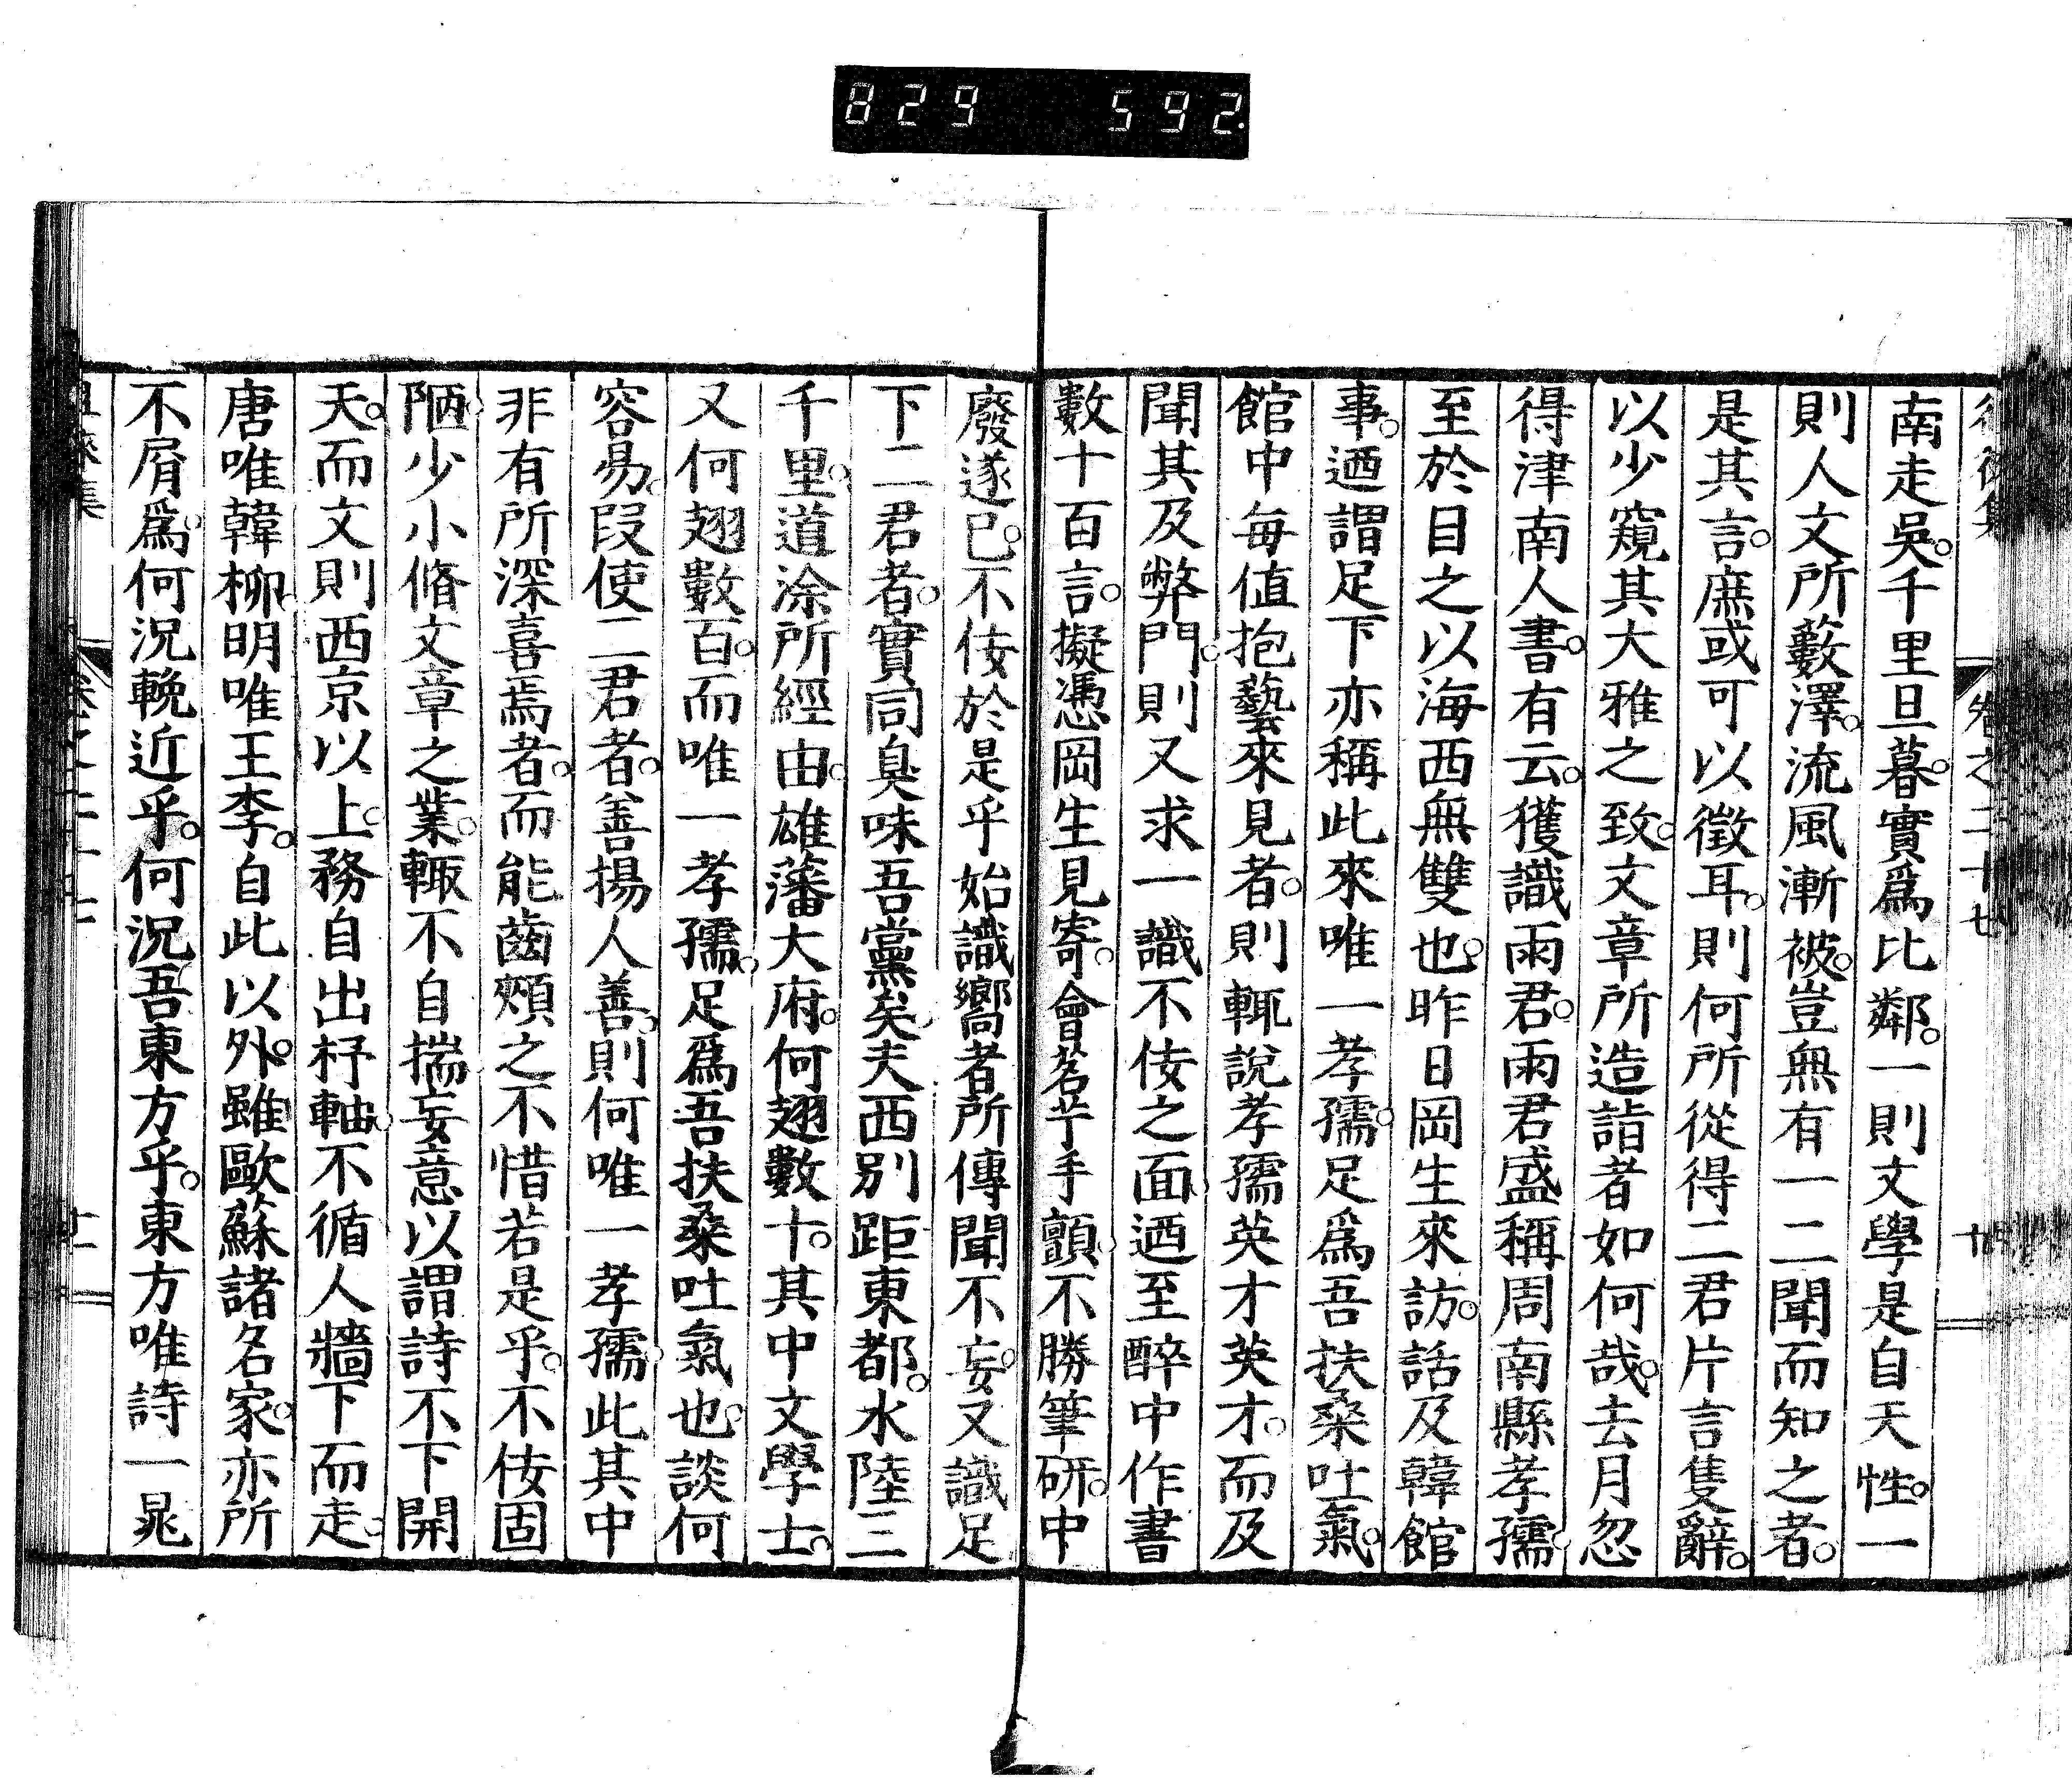 829 592
南走吳。千里旦暮。實爲比鄰。一則文學是自天性。一
則人文所藪澤。流風漸被。豈無有一二聞而知之者。
是其言。庶或可以徵耳。則何所從得二君片言隻辭。
以少窺其大雅之致。文章所造詣者如何哉。去月忽
得津南人書。有云。獲識雨君。雨君盛稱周南縣孝孺
至於目之以海西無雙也。昨日岡生來訪。話及韓館
事。迺謂足下亦稱此來唯一孝孺。足爲吾扶桑吐氣。
館中每值抱藝來見者。則輒說孝孺英才英才。而及
聞其及弊門。則又求一識不佞之面。迺至醉中作書
數十百言。擬憑岡生見寄。會茗芋手顫。不勝筆研。中
廢遂已。不佞於是乎始識嚮者所傳聞不妄。又識足
下二君者。實同臭味吾黨矣。夫西別距東都。水陸三
千里。道涂所經由。雄藩大府。何翅數十。其中文學士。
又何翅數百。而唯一孝孺。足爲吾扶桑吐氣也。談何
容易。叚使二君者。善揚人善。則何唯一孝孺。此其中
非有所深喜焉者。而能齒頰之不惜若是乎。不佞固
陋。少小脩文章之業。輙不自揣。妄意以謂詩不下開
天。而文則西京以上。務自出杼軸。不循人牆下而走。
唐唯韓柳。明唯王李。自此以外。雖歐蘇諸名家。亦所
不屑爲。何況輓近乎。何況吾東方乎。東方唯詩一晁